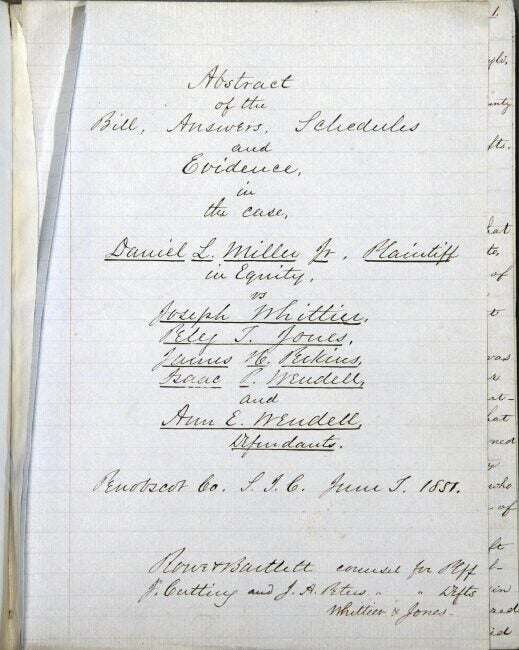 Abstract
of the
Bill, Answers, Schedules
and
Evidence,
in
the case,
Daniel L. Miller Jr, Plaintiff
in Equity,
vs
Joseph Whittier,
Peleg T. Jones,
James H. Perkins,
Isaac P. Wendell,
and
Ann E. Wendell,
Defendants.
Penobscot Co. S. J. C. June T. 1851.
Rowe & Bartlett counsel for Plff
J. Cutting and J. A. Peters " " Defts
Whittier & Jones-
1.
nty
fts.
hat
of
t
was
hat
ned
who
of
ft
in
red
id